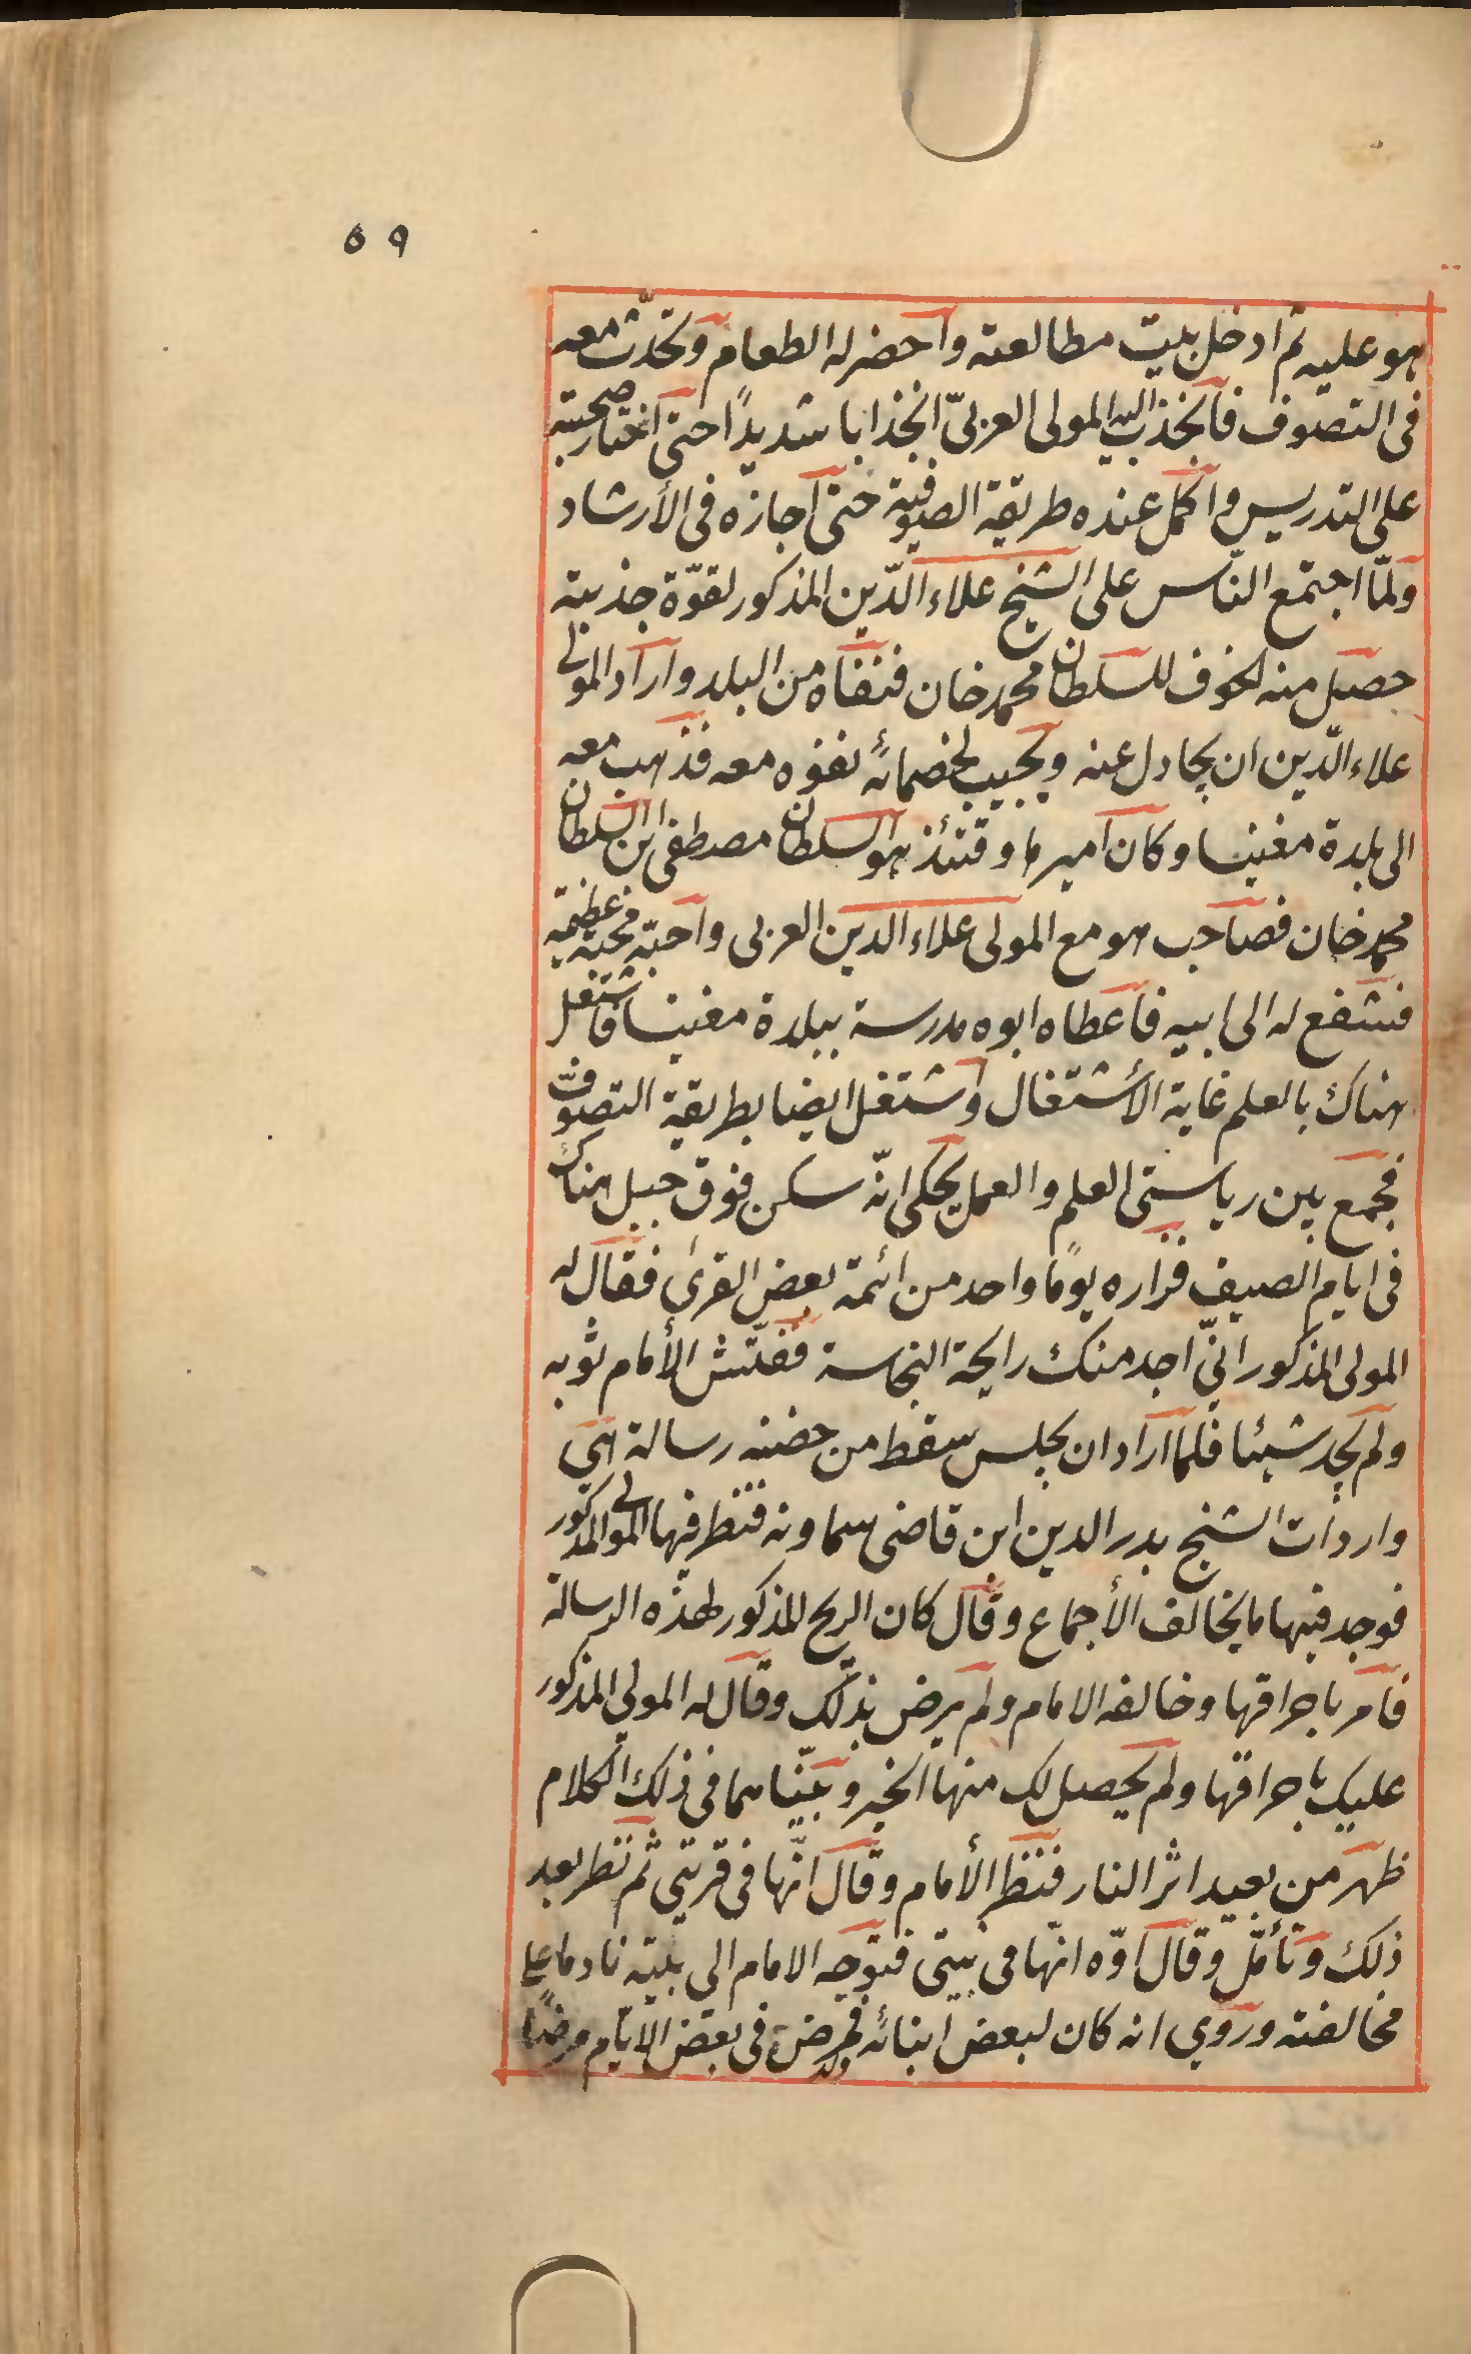 ٥٩
هو عليه ثم ادخل بيت مطالعته واحضر له الطعام وتحدّث معه
فى التصوف فانجذب اليه المولى العربىّ انجذابا شديدًا حتى اختار صحبته
على التدريس واكمل عنده طريقة الصوفية حتى اجازه فى الأرشاد
ولمّا اجتمع النّاس على الشيخ علاء الدّين المذكور لقوّة جذبته
حصل منه الخوف للسلطان محمد خان فنفاه من البلد واراد المولى
علاء الدّين ان يجادل عنه ويجيب لخصمائه نفوه معه فذهب معه
الى بلدة مغنيسا وكان اميرها وقتئذ هو السلطان مصطفى ابن السلطان
محمد خان فصاحب هو مع المولى علاء الدين العربى واحبّه محبّة عظيمة
فشفع له الى ابيه فاعطاه ابوه مدرسة ببلدة مغنيسا فاشتغل
هناك بالعلم غاية الأشتغال واشتغل ايضا بطريقة التصوّف
فجمع بين رياستى العلم والعمل يحكى انّه سكن فوق جبل هناك
فى ايام الصيف فزاره يومًا واحد من ائمة بعض القرى فقال له
المولى المذكور انّى اجد منك رايحة النجاسة ففتّش الأمام ثوبه
ولم يجد شيئا فلما اراد ان يجلس سقط من حضنه رسالة هى
واردات الشيخ بدر الدين ابن قاضى سماونه فنظر فيها المولى المذكور
فوجد فيها ما يخالف الأجماع وقال كان الريح المذكور لهذه الرسالة
فامر باحراقها وخالفه الامام ولم يرض بذلك وقال له المولى المذكور
عليك باحراقها ولم يحصل لك منها الخير وبينّا هما فى ذلك الكلام
ظهر من بعيد اثر النار فنظر الأمام وقال انّها فى قريتى ثم نظر بعد
ذلك وتأمّل وقال اوّه انّها فى بيتى فتوجه الامام الى بيته نادما على
مخالفته وروى انه كان لبعض ابنائه ولد فمرض فى بعض الايّام مرضًا